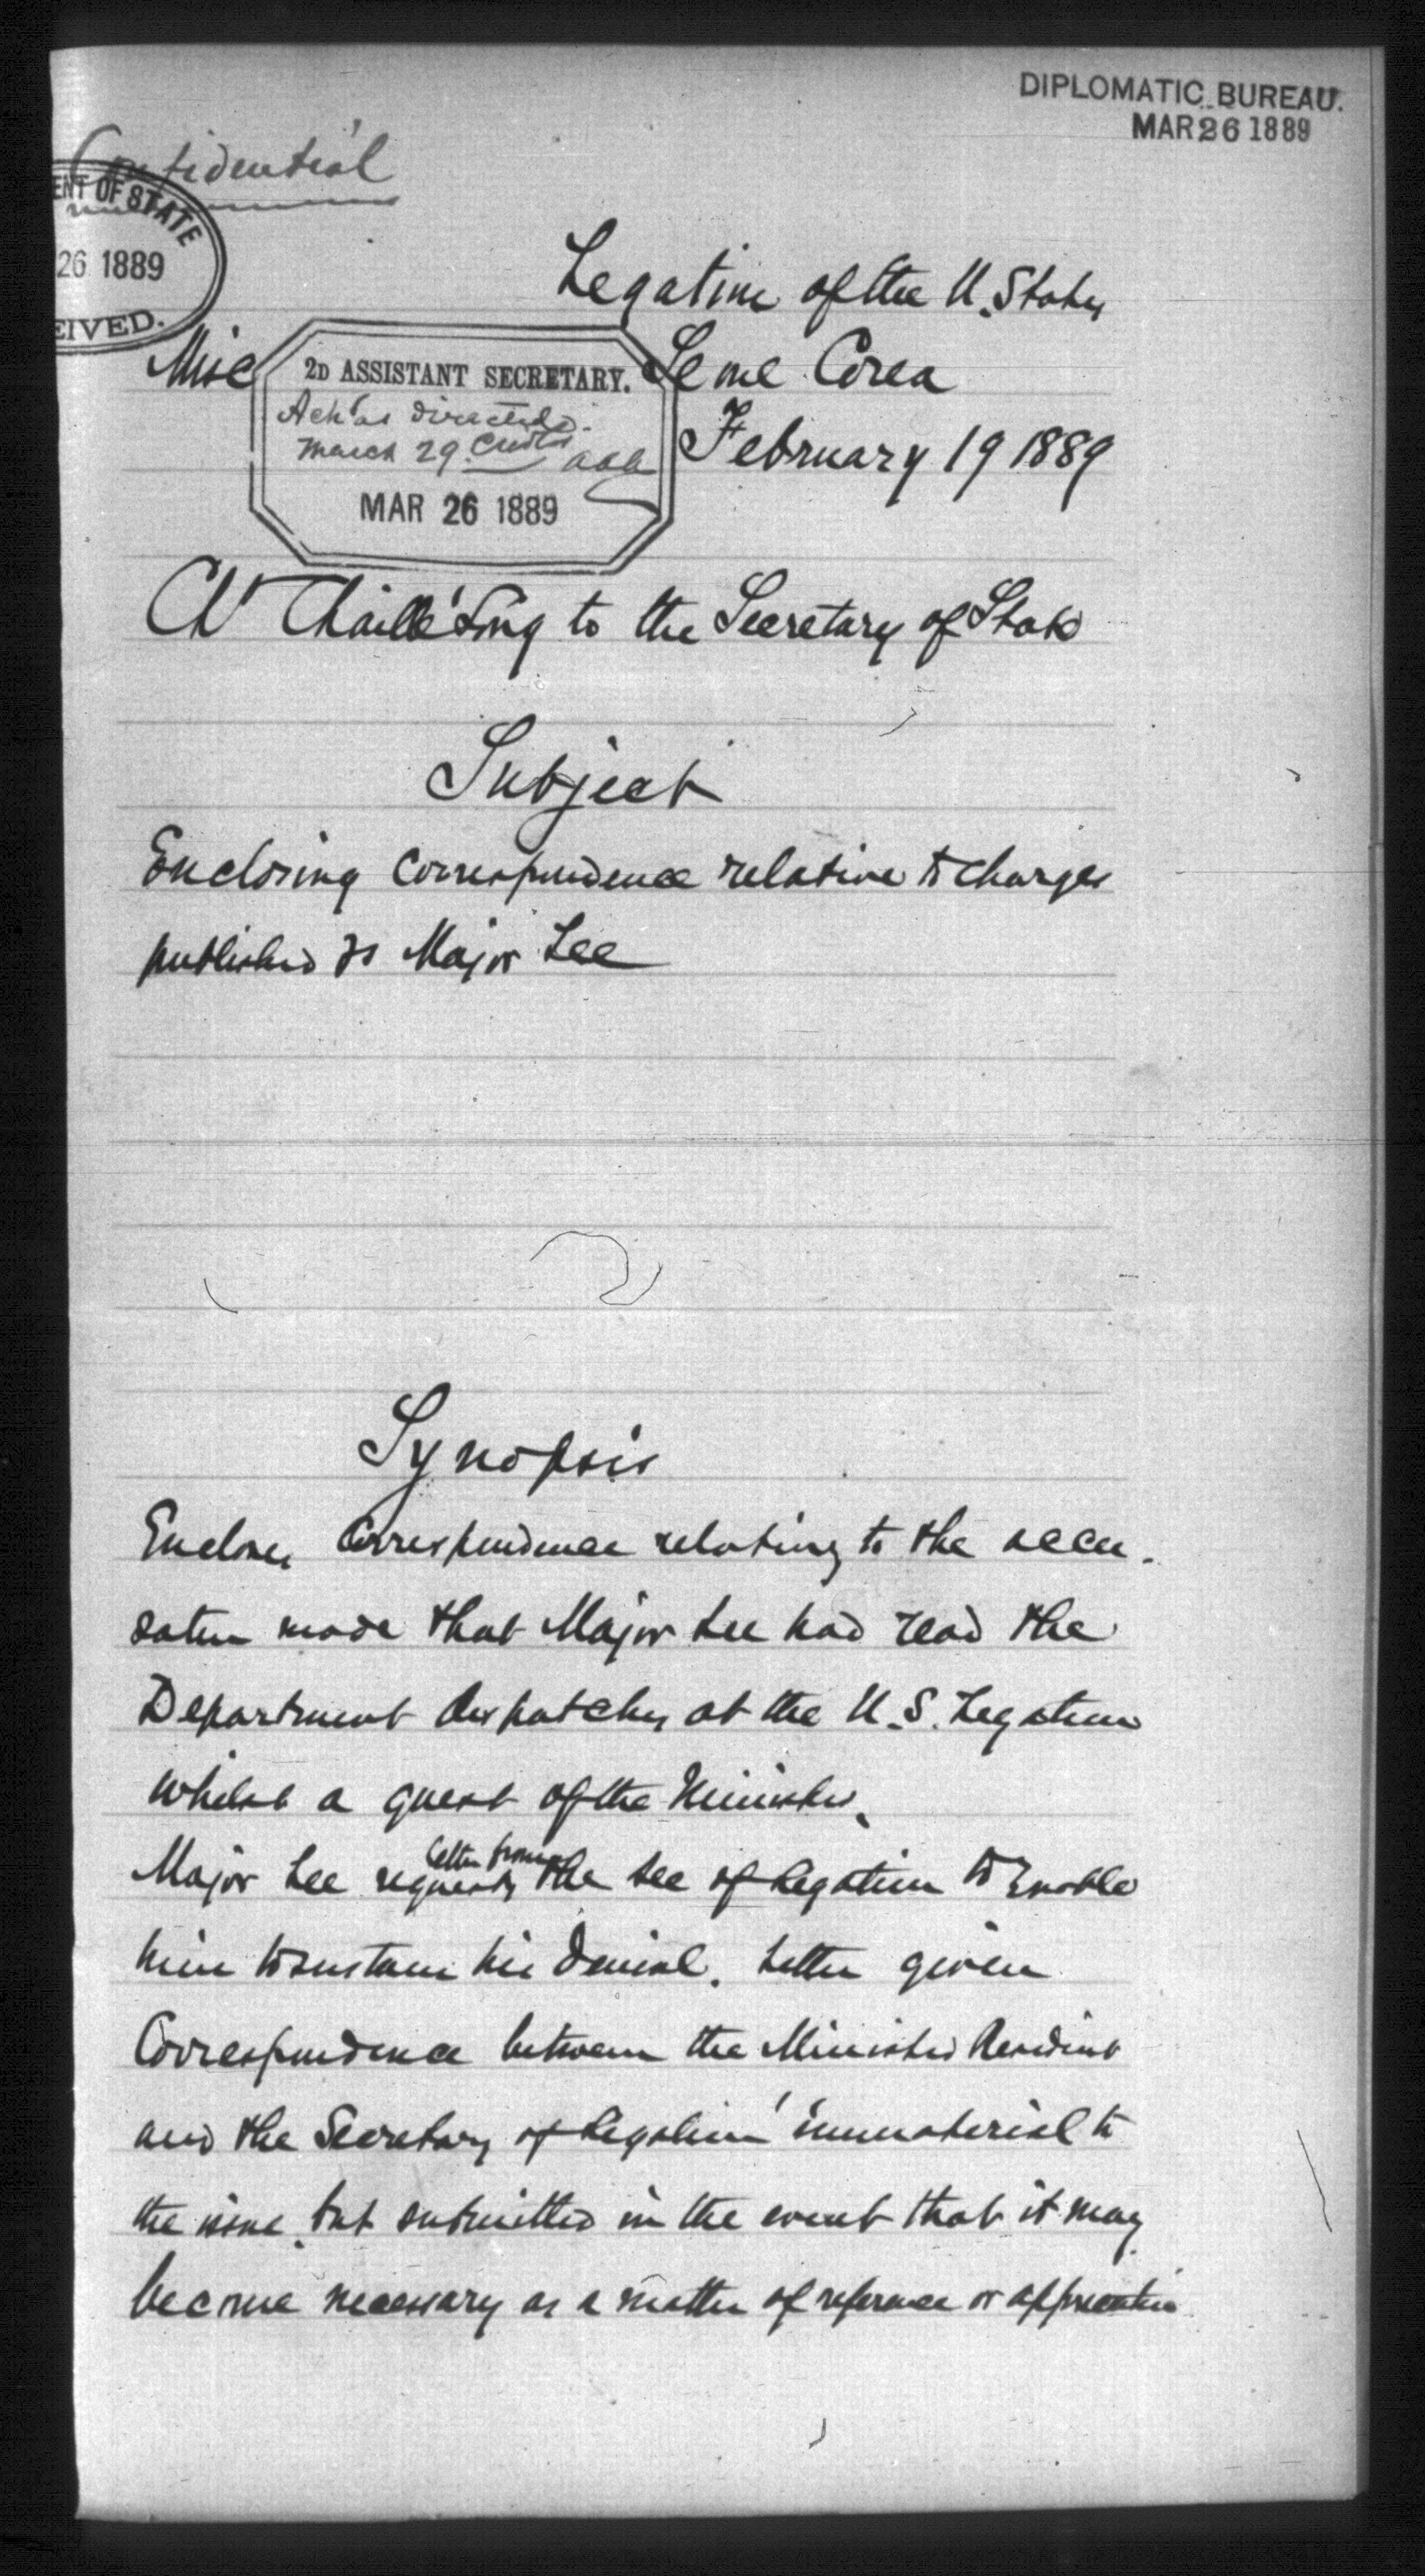 DIPLOMATIC BUREAU.
MAR 26 1889
Confidential
ENT OF STATE
26 1889
EIVED.
Legation of the U. States
Misc
Seoul Corea
2D ASSISTANT SECRETARY.
Ack'as directed.
March 29. aaa
February 19 1889
MAR 26 1889
Ch Chaillé Long to the Secretary of State
Subject
Enclosing Correspondence relative to charges
published as Major Lee
Synopsis
Encloses Correspondence relating to the accu-
sation made that Major Lee had read the
Department despatches at the U.S. Legation
whilst a guest of the Minister.
letter from
Major Lee requests the Sec of Legation to Enable
him to sustain his denial. Letter given
Correspondence between the Minister Resident
and the Secretary of Legation immaterial to
the issue, but submitted in the event that it may
become necessary as a matter of reference or appreciation